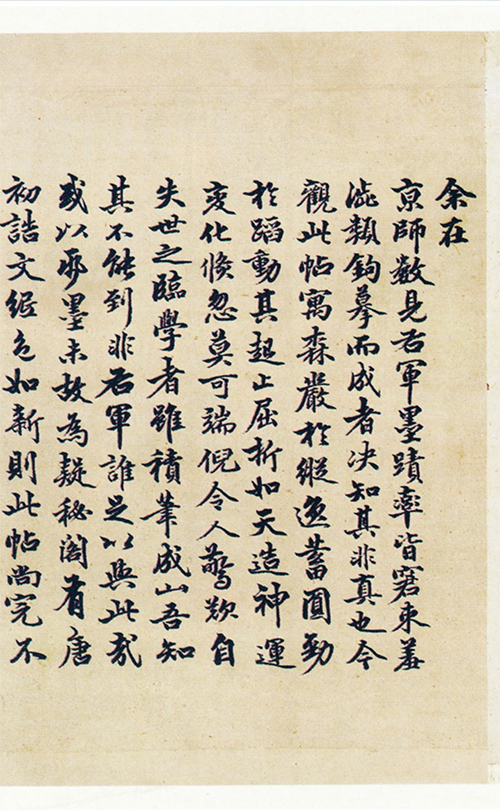 余在
京師數見右軍墨蹟率皆窘束羞
澁類鉤摹而成者决知其非真也今
觀此帖寓森嚴於縱逸蓄圓勁
於蹈動其起止屈折如天造神運
變化倏忽莫可端倪令人驚歎自
失世之臨學者雖積筆成山吾知
其不能到非右軍誰足以與此哉
或以耶墨未故為疑秘閣有唐
初誥文絙色如新則此帖尚完不